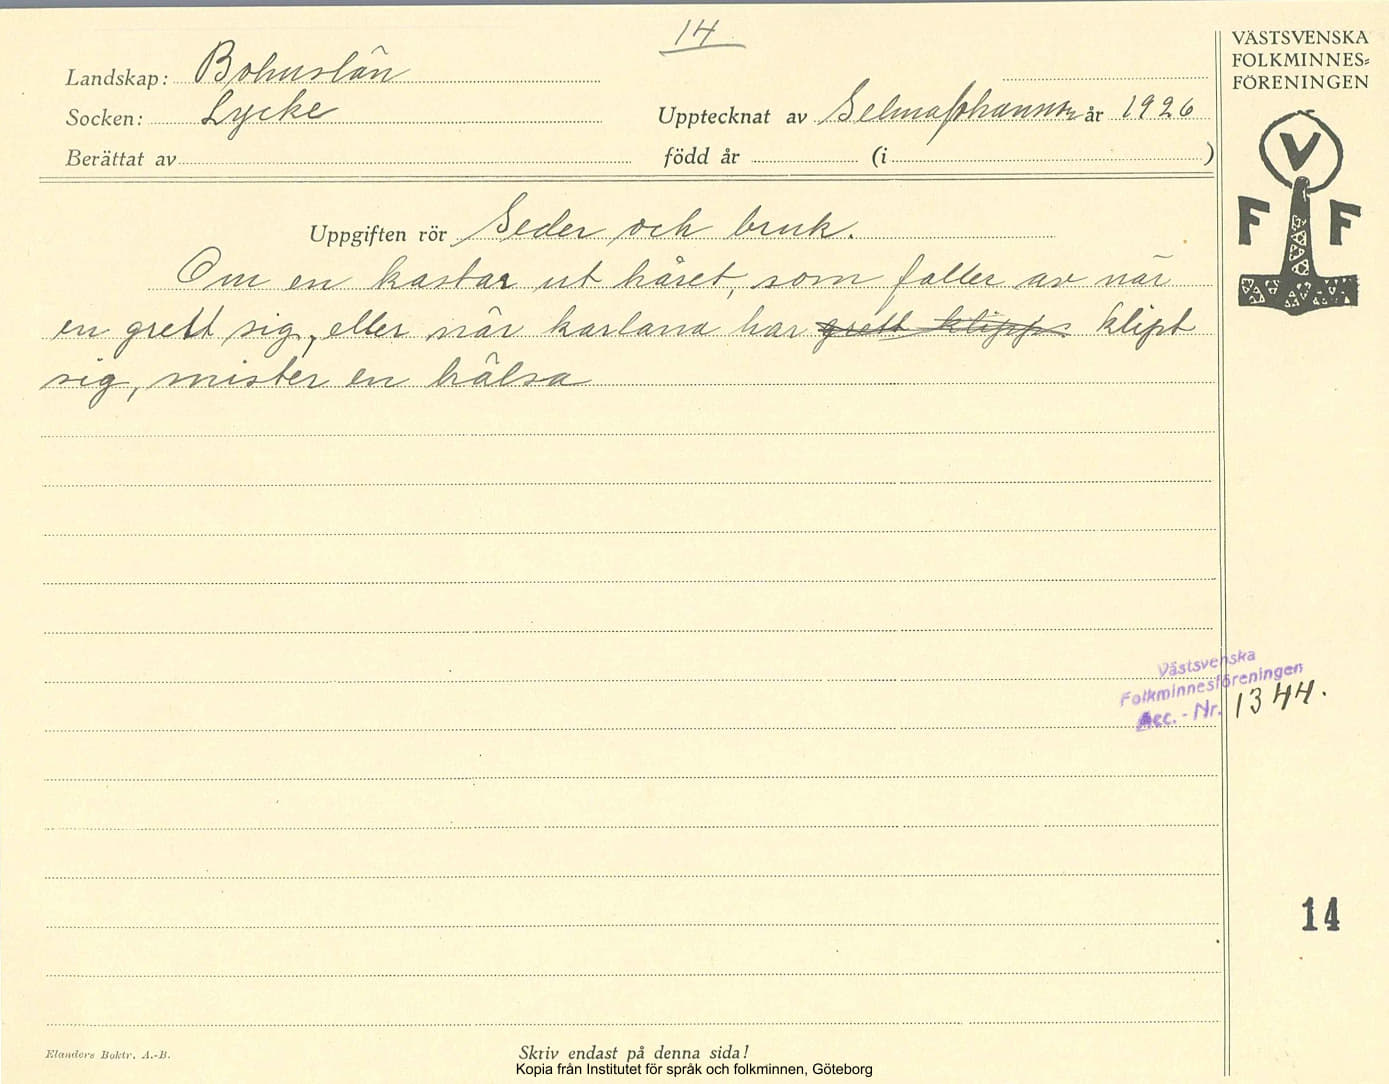 14
VÄSTSVENSKA
FOLKMINNES=
FÖRENINGEN
Landskap: Bohuslän
Socken: Lycke
Upptecknat av Selma Johansson år 1926
Berättat av
född år (i )
V
F F
Uppgiften rör Seder och bruk.
Om en kastar ut håret, som faller av när
en grett sig, eller när karlana har grett klipps klipt
sig, mister en hälsa
Västsvenska
Folkminnesföreningen
Acc. - Nr. 1344.
14
Elanders Boktr. A.-B.
Skriv endast på denna sida!
Kopia från Institutet för språk och folkminnen, Göteborg